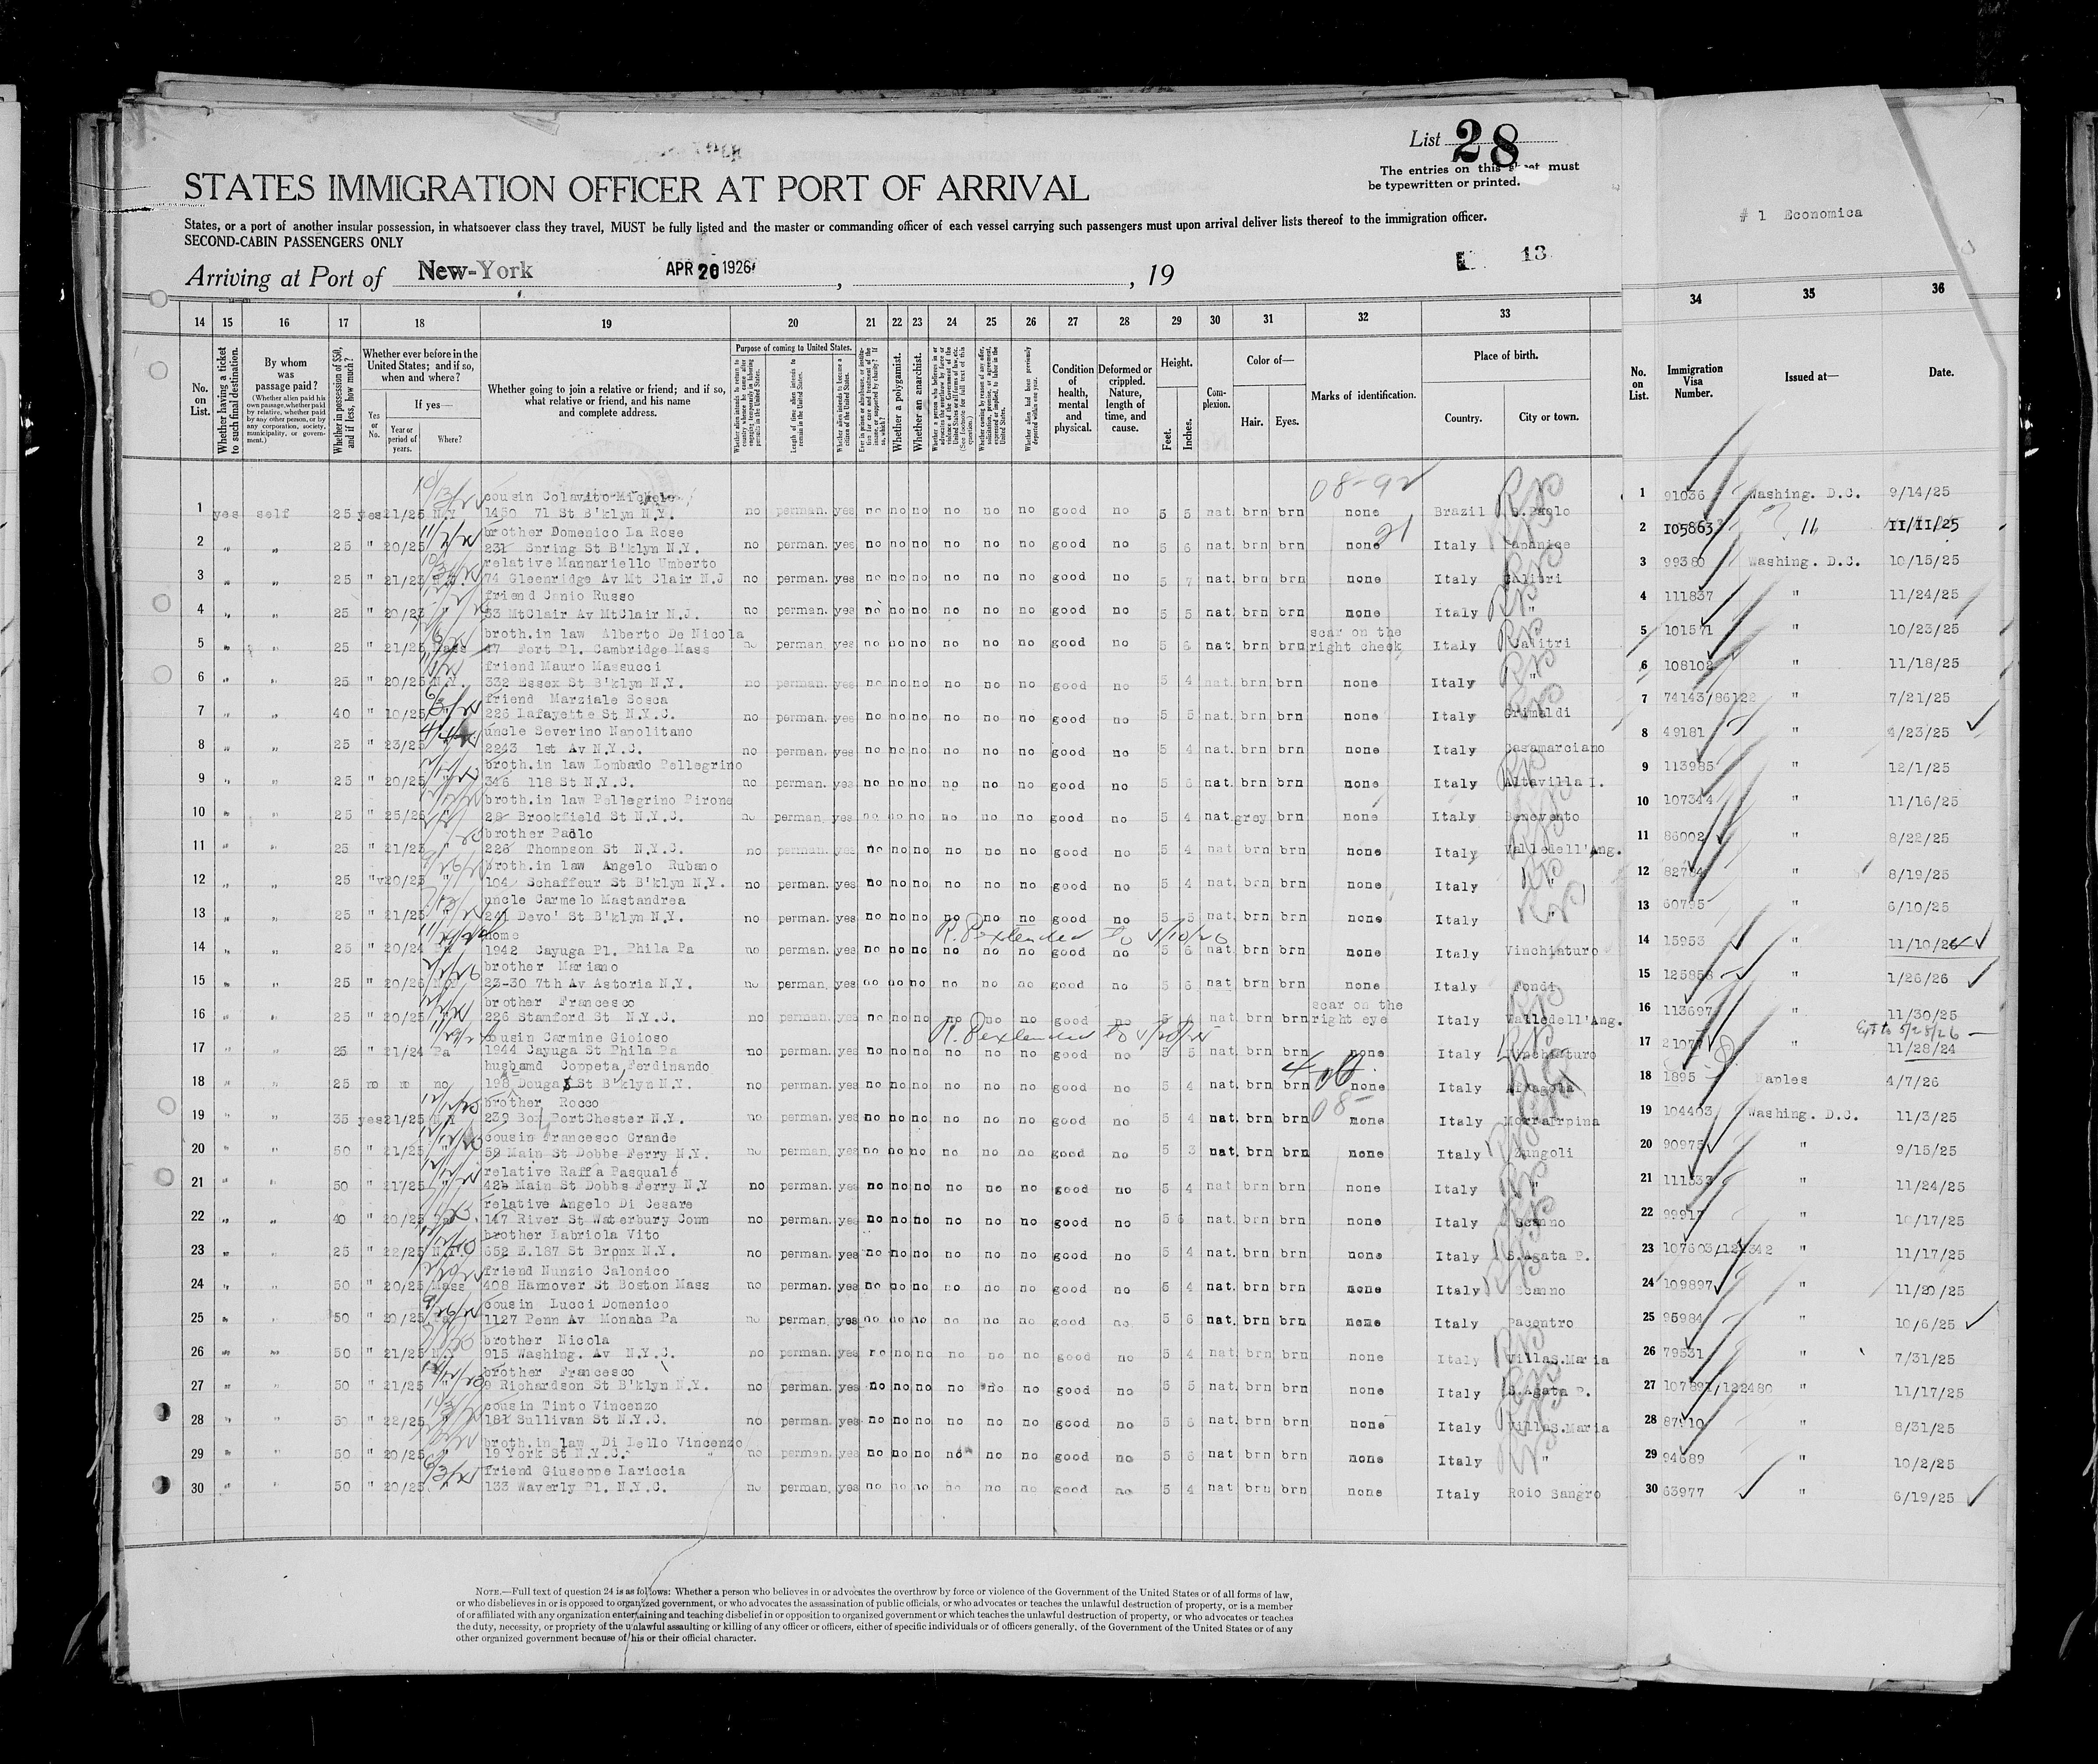 List 28
The entries on this sheet must
be typewritten or printed.
STATES IMMIGRATION OFFICER AT PORT OF ARRIVAL
# 1 Economica
States, or a port of another insular possession, in whatsoever class they travel, MUST be fully listed and the master or commanding officer of each vessel carrying such passengers must upon arrival deliver lists thereof to the immigration officer.
SECOND-CABIN PASSENGERS ONLY
Arriving at Port of New-York APR 20 1926, , 19
13
14 15 16 17 18 19 20 21 22 23 24 25 26 27 28 29 30 31 32 33 34 35 36
No. on List.
Whether having a ticket to such final destination.
By whom was passage paid?
(Whether alien paid his own passage, whether paid by relative, whether paid by any other person, or by any corporation, society, municipality, or government.)
Whether in possession of $50, and if less, how much?
Whether ever before in the United States; and if so, when and where?
Yes or No.
If yes—
Year or period of years.
Where?
Whether going to join a relative or friend; and if so, what relative or friend, and his name and complete address.
Purpose of coming to United States.
Length of time alien intends to remain in the United States.
Whether alien intends to become a citizen of the United States.
Whether a polygamist.
Whether an anarchist.
Condition of health, mental and physical.
Deformed or crippled. Nature, length of time, and cause.
Height.
Feet. Inches.
Complexion.
Color of—
Hair. Eyes.
Marks of identification.
Place of birth.
Country. City or town.
No. on List.
Immigration Visa Number.
Issued at—
Date.
08-92
cousin Colavito Michele
1 yes self 25 yes 21/25 N.Y 1450 71 St B'klyn N.Y. no perman. yes no no no no no no good no 5 5 nat. brn brn none Brazil S.Paolo 1 91036 Washing. D.C. 9/14/25
brother Domenico La Rose
2 " " 25 " 20/25 231 Spring St B'klyn N.Y. no perman. yes no no no no no no good no 5 6 nat. brn brn none Italy 2 105863 " 11/11/25
relative Mannariello Umberto
3 " " 25 " 21/23 74 Gleenridge Av Mt Clair N.J no perman. yes no no no no no no good no 5 7 nat. brn brn none Italy Calitri 3 99380 Washing. D.C. 10/15/25
friend Canio Russo
4 " " 25 " 20/23 " 53 MtClair Av MtClair N.J. no perman. yes no no no no no no good no 5 5 nat. brn brn none Italy " 4 111837 " 11/24/25
broth.in law Alberto De Nicola scar on the
5 " " 25 " 21/25 Mass 47 Fort Pl. Cambridge Mass no perman. yes no no no no no no good no 5 6 nat. brn brn right cheek Italy Calitri 5 101571 " 10/23/25
friend Mauro Massucci
6 " " 25 " 20/25 N.Y. 332 Essex St B'klyn N.Y. no perman. yes no no no no no no good no 5 4 nat. brn brn none Italy " 6 108102 " 11/18/25
friend Marziale Sosca
7 " " 40 " 10/25 " 226 Lafayette St N.Y.C. no perman. yes no no no no no no good no 5 5 nat. brn brn none Italy Grimaldi 7 74143/86122 " 7/21/25
uncle Severino Napolitano
8 " " 25 " 23/25 2243 1st Av N.Y.C. no perman. yes no no no no no no good no 5 4 nat. brn brn none Italy Casamarciano 8 49181 " 4/23/25
broth.in law Lombado Pellegrino
9 " " 25 " 20/25 " 346 118 St N.Y.C. no perman. yes no no no no no no good no 5 6 nat. brn brn none Italy Altavilla I. 9 113985 " 12/1/25
broth.in law Pellegrino Pirone
10 " " 25 " 25/25 " 29 Brookfield St N.Y.C. no perman. yes no no no no no no good no 5 4 nat. grey brn none Italy Benevento 10 107344 " 11/16/25
brother Paolo
11 " " 25 " 21/23 " 226 Thompson St N.Y.C. no perman. yes no no no no no no good no 5 4 nat. brn brn none Italy Valledell'Ang. 11 86002 " 8/22/25
broth.in law Angelo Rubano
12 " " 25 " 20/25 " 104 Schaffeur St B'klyn N.Y. no perman. yes no no no no no no good no 5 4 nat. brn brn none Italy " 12 " 8/19/25
uncle Carmelo Mastandrea
13 " " 25 " 21/25 " 247 Devo' St B'klyn N.Y. no perman. yes no no no no no no good no 5 5 nat. brn brn none Italy " 13 60795 " 6/10/25
home R.P. extended to 4/10/26
14 " " 25 " 20/24 Pa 1942 Cayuga Pl. Phila Pa no perman. yes no no no no no no good no 5 6 nat. brn brn none Italy Vinchiaturo 14 15953 " 11/10/24
brother Mariano
15 " " 25 " 20/26 23-30 7th Av Astoria N.Y. no perman. yes no no no no no no good no 5 6 nat brn brn none Italy Fondi 15 125858 " 1/26/26
brother Francesco scar on the
16 " " 25 " 20/25 " 226 Stamford St N.Y.C. no perman. yes no no no no no no good no 5 4 nat. brn brn right eye Italy Valledell'Ang. 16 113697 " 11/30/25
cousin Carmine Gioioso R.P. extended to Ext to 5/28/26
17 " " 25 " 21/24 Pa 1944 Cayuga St Phila Pa no perman. yes no no no no no no good no 5 5 nat. brn brn none Italy Vinchiaturo 17 " 11/28/24
husband Coppeta Ferdinando
18 " " 25 no no no 198 Dougas St B'klyn N.Y. no perman. yes no no no no no no good no 5 4 nat. brn brn none Italy Afragola 18 1895 Naples 4/7/26
brother Rocco
19 " " 35 yes 21/25 N.Y 239 Box PortChester N.Y. no perman. yes no no no no no no good no 5 4 nat. brn brn none Italy MorraIrpina 19 104403 Washing. D.C. 11/3/25
cousin Francesco Grande
20 " " 50 " 21/25 " 59 Main St Dobbs Ferry N.Y. no perman. yes no no no no no no good no 5 3 nat. brn brn none Italy Zungoli 20 90975 " 9/15/25
relative Raffa Pasquale
21 " " 50 " 21/25 " 42 Main St Dobbs Ferry N.Y no perman. yes no no no no no no good no 5 4 nat brn brn none Italy " 21 111533 " 11/24/25
relative Angelo Di Cesare
22 " " 40 " 20/25 Pa 147 River St Waterbury Conn no perman. yes no no no no no no good no 5 6 nat. brn brn none Italy Scanno 22 99917 " 10/17/25
brother Labriola Vito
23 " " 25 " 22/25 N.Y. 652 E.187 St Bronx N.Y. no perman. yes no no no no no no good no 5 4 nat. brn brn none Italy S.Agata P. 23 " 11/17/25
friend Nunzio Calonico
24 " " 50 " 20/25 Mass 408 Hannover St Boston Mass no perman. yes no no no no no no good no 5 4 nat. brn brn none Italy Scanno 24 109897 " 11/20/25
cousin Lucci Domenico
25 " " 50 " 20/25 Pa 1127 Penn Av Monaha Pa no perman. yes no no no no no no good no 5 6 nat. brn brn none Italy Pacentro 25 95984 " 10/6/25
brother Nicola
26 " " 50 " 21/25 N.Y 915 Washing. Av N.Y.C. no perman. yes no no no no no no good no 5 4 nat. brn brn none Italy VillaS.Maria 26 79531 " 7/31/25
brother Francesco
27 " " 50 " 21/25 " 9 Richardson St B'klyn N.Y. no perman. yes no no no no no no good no 5 5 nat. brn brn none Italy S.Agata P. 27 107891/122480 " 11/17/25
cousin Tinto Vincenzo
28 " " 50 " 22/25 " 181 Sullivan St N.Y.C. no perman. yes no no no no no no good no 5 6 nat. brn brn none Italy VillaS.Maria 28 87910 " 8/31/25
broth.in law Di Lello Vincenzo
29 " " 50 " 20/25 " 19 York St N.Y.C. no perman. yes no no no no no no good no 5 6 nat brn brn none Italy " 29 94689 " 10/2/25
friend Giuseppe Lariccia
30 " " 50 " 20/25 " 133 Waverly Pl. N.Y.C. no perman. yes no no no no no no good no 5 4 nat brn brn none Italy Roio Sangro 30 63977 " 6/19/25
NOTE.—Full text of question 24 is as follows: Whether a person who believes in or advocates the overthrow by force or violence of the Government of the United States or of all forms of law,
or who disbelieves in or is opposed to organized government, or who advocates the assassination of public officials, or who advocates or teaches the unlawful destruction of property, or is a member
of or affiliated with any organization entertaining and teaching disbelief in or opposition to organized government or which teaches the unlawful destruction of property, or who advocates or teaches
the duty, necessity, or propriety of the unlawful assaulting or killing of any officer or officers, either of specific individuals or of officers generally, of the Government of the United States or of any
other organized government because of his or their official character.